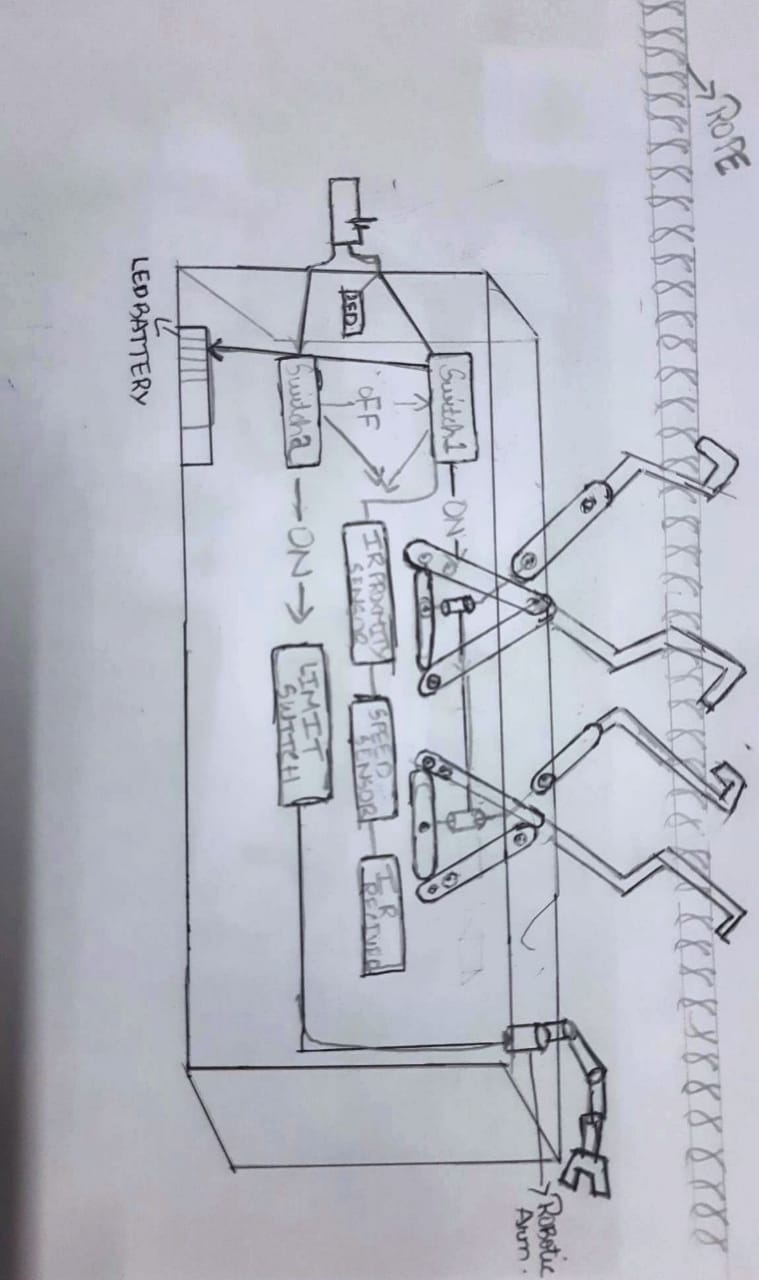 ROPE
Robotic
Arm.
Switch1
ON
OFF
IR PROXMITY
SENSOR
SPEED
SENSOR
I R
RECIVER
Switch2
ON
LIMIT
SWITCH
LED BATTERY